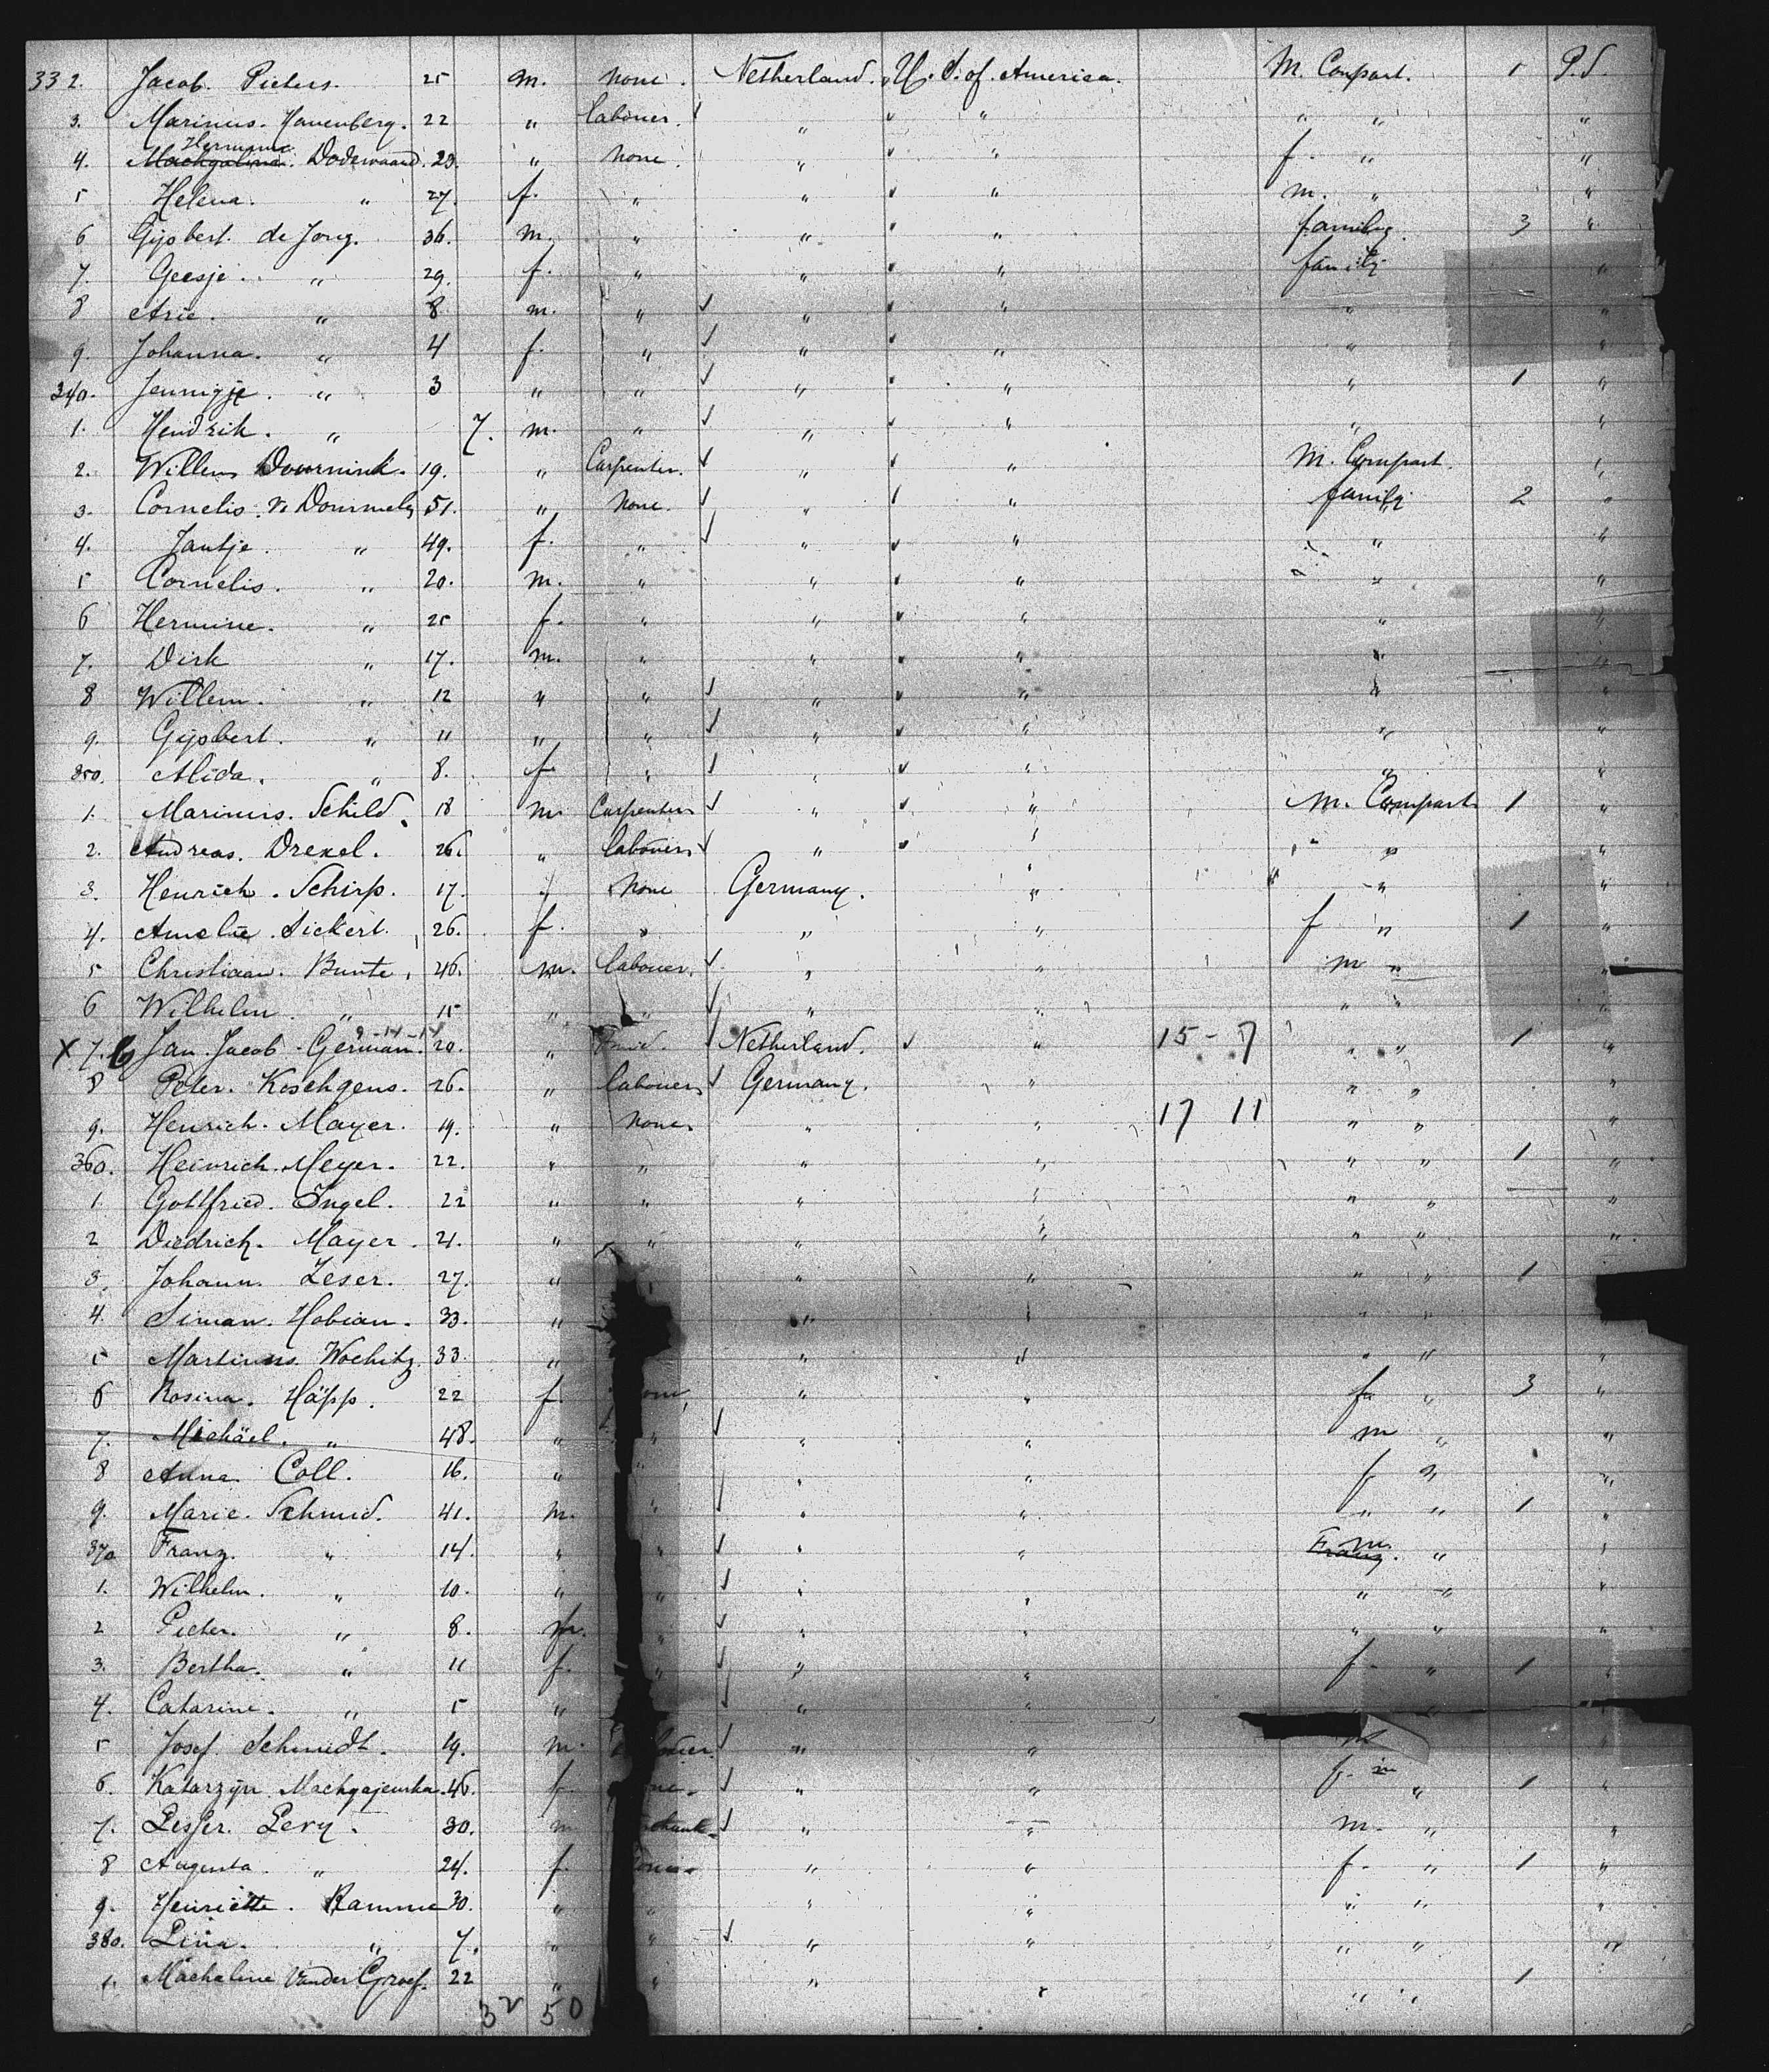 332. Jacob. Pieters. 25 m. none. Netherland. U. S. of. America. M. Conpart. 1 P.d.
3. Marinus. Hauenberg. 22 " labouer. " " " " "
4. Hermann Dodewaard. 23. " none. " " f. " "
5 Helena. " 27. f. " " " m. " "
6 Gijsbert. de Jong. 36. m. " " " family. 3 "
7. Geesje. " 29. f. " " " family "
8 Arie. " 8. m. " " " " "
9. Johanna. " 4 f. " " " " "
340. Jennigje. " 3 " " " " " 1 "
1. Hendrik. " 7. m. " " " " "
2. Willem Dournink. 19. " Carpenter. " " M. Compart. "
3. Cornelis. v. Dommely 51. " none. " " family 2 "
4. Jantje. " 49. f. " " " " "
5 Cornelis. " 20. m. " " " " "
6 Hermine. " 25 f. " " " " "
7. Dirk " 17. m. " " " " "
8 Willem. " 12 " " " " " "
9. Gijsbert. " 11 " " " " " "
350. Alida. " 8. f. " " " " "
1. Marinus. Schild. 18 m. Carpenter " " M. Compart 1 "
2. Andreas. Drexel. 26. " labouer " " " " "
3. Henrich. Schirp. 17. " none Germany. " " "
4. Amelie. Sickert. 26. f. " " " f " 1 "
5 Christiaan. Bunte. 46. m. labouer. " " m " "
6 Wilhelm. " 15 " " " " " " "
X 7. Jan. Jacob. German. 20. " Netherland. " 15 - 7 " " 1 "
8 Peter. Koschgens. 26. " labouer Germany. " " " "
9. Henrich. Mayer. 19. " none. " " 17 11 " " "
360. Heinrich. Meyer. 22. " " " " " " 1 "
1. Gottfried. Engel. 22 " " " " " " "
2 Diedrich. Mayer. 21. " " " " " " "
3. Johann. Zeser. 27. " " " " " 1
4. Siman. Hobian. 33. " " " " "
5 Martinus. Wochitz. 33. " " " " " "
6 Rosina. Häpp. 22 f. " " f " 3 "
7. Michäel. " 48. " " " " m " "
8 Anna. Coll. 16. " " " " f " "
9. Marie. Schmid. 41. m. " " " " " 1 "
370 Franz. " 14. " " " m. " "
1. Wilhelm. " 10. " " " " " " "
2 Pieter. " 8. m. " " " " " "
3. Bertha. " 11 f. " " " f. " 1 "
4. Catarine. " 5 " " "
5 Josef. Schmidt. 19. m. " " m "
6. Katarzyn. Machgajewska. 46. f. " " f. " 1 "
7. Lesser. Levy. 30. m " " m. " "
8 Augusta. " 24. f. " " f. " 1 "
9. Henriette. Ramme 30. " " " " " " "
380. Lina. " 7. " " " " " " "
1. Macheline Vander Groef. 22 " " " " " " 1
32 50